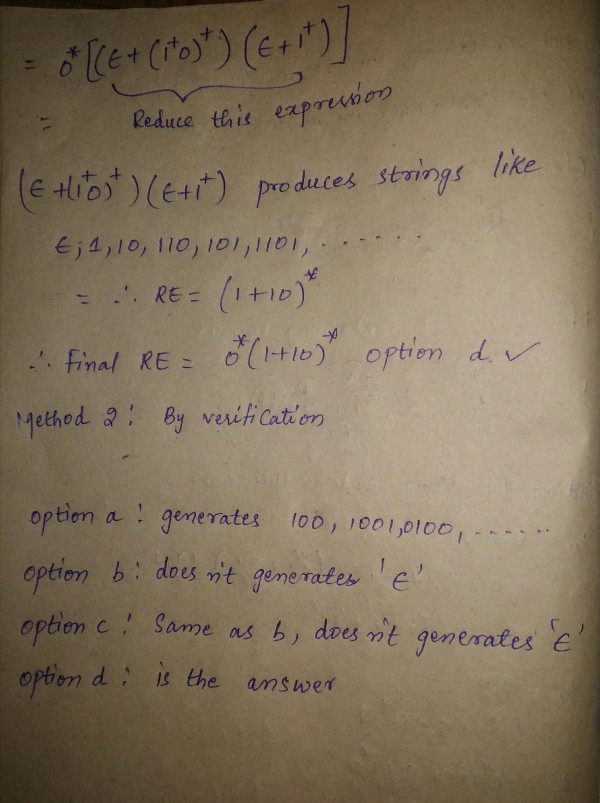 = 0*[(ϵ+(1⁺0)⁺)(ϵ+1⁺)]
= Reduce this expression
(ϵ+(1⁺0)⁺)(ϵ+1⁺) produces strings like
ϵ, 1, 10, 110, 101, 1101, ......
= ∴ RE = (1+10)*
∴ Final RE = 0*(1+10)* option d. ✓
Method 2: By verification
option a: generates 100, 1001, 0100, ......
option b: does n't generates 'ϵ'
option c: Same as b, does n't generates 'ϵ'
option d: is the answer